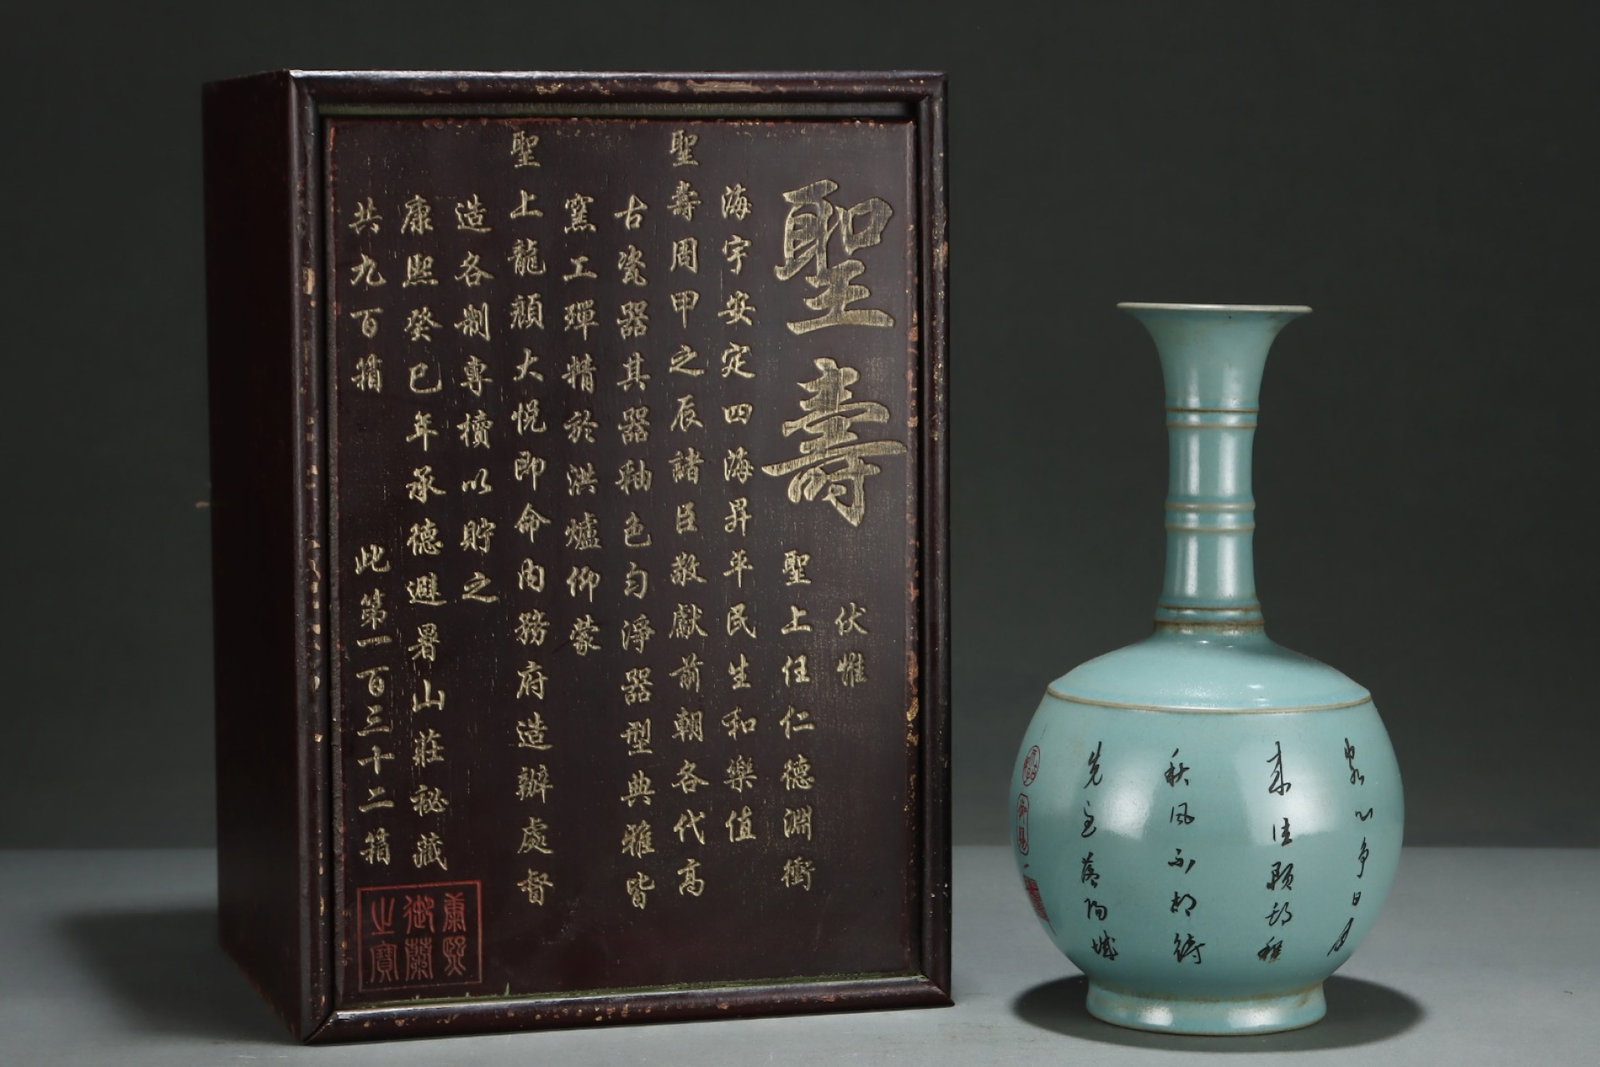 聖壽
伏惟
聖上任仁德淵衝
海宇安定四海昇平民生和樂值
聖壽周甲之辰諸臣敬獻前朝各代高
古瓷器其器釉色勻淨器型典雅皆
窯工殫精於洪爐仰蒙
聖上龍顏大悅即命內務府造辦處督
造各制專櫝以貯之
康熙癸巳年承德避暑山莊祕藏
共九百箱 此第一百三十二箱
康熙
御覽
之寶
來
秋風不相待
先至洛陽城